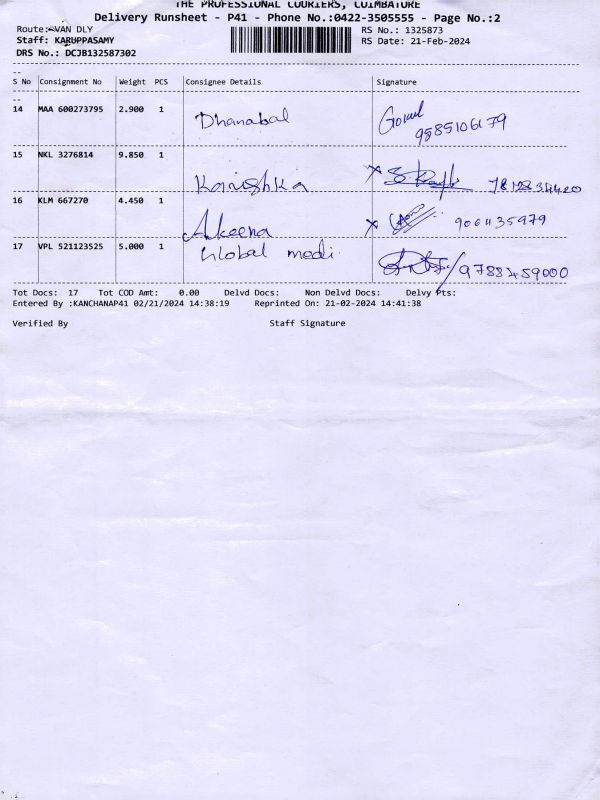 THE PROFESSIONAL COURIERS, COIMBATORE
Delivery Runsheet - P41 - Phone No.:0422-3505555 - Page No.:2
Route: VAN DLY
RS No.: 1325873
Staff: KARUPPASAMY
RS Date: 21-Feb-2024
DRS No.: DCJB132587302
S No Consignment No Weight PCS Consignee Details Signature
14 MAA 600273795 2.900 1 Dhanabal Gowl
9585106179
15 NKL 3276814 9.850 1
Kanishka
16 KLM 667270 4.450 1
Akeena
17 VPL 521123525 5.000 1 Global medi
9788459000
Tot Docs: 17 Tot COD Amt: 0.00 Delvd Docs: Non Delvd Docs: Delvy Pts:
Entered By :KANCHANAP41 02/21/2024 14:38:19 Reprinted On: 21-02-2024 14:41:38
Verified By Staff Signature